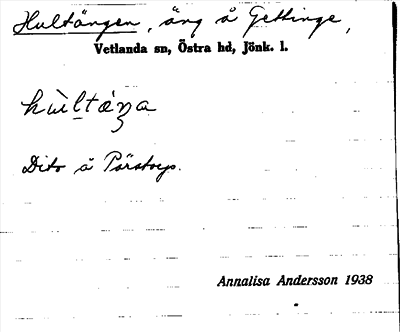 Hultängen, äng å Gettinge,
Vetlanda sn, Östra hd, Jönk. l.
Dito å Pärstorp.
Annalisa Andersson 1938